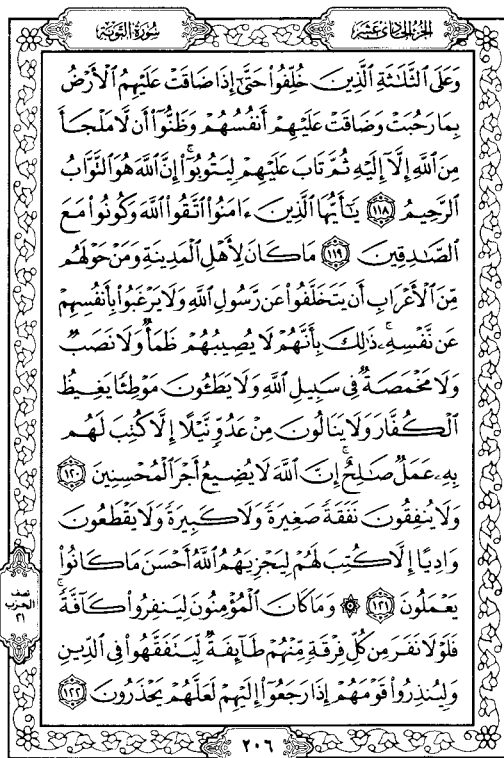 الجزء الحادى عشر
سورة التوبة
وَعَلَى ٱلثَّلَٰثَةِ ٱلَّذِينَ خُلِّفُوا۟ حَتَّىٰٓ إِذَا ضَاقَتْ عَلَيْهِمُ ٱلْأَرْضُ
بِمَا رَحُبَتْ وَضَاقَتْ عَلَيْهِمْ أَنفُسُهُمْ وَظَنُّوٓا۟ أَن لَّا مَلْجَأَ
مِنَ ٱللَّهِ إِلَّآ إِلَيْهِ ثُمَّ تَابَ عَلَيْهِمْ لِيَتُوبُوٓا۟ ۚ إِنَّ ٱللَّهَ هُوَ ٱلتَّوَّابُ
ٱلرَّحِيمُ ١١٨ يَٰٓأَيُّهَا ٱلَّذِينَ ءَامَنُوا۟ ٱتَّقُوا۟ ٱللَّهَ وَكُونُوا۟ مَعَ
ٱلصَّٰدِقِينَ ١١٩ مَا كَانَ لِأَهْلِ ٱلْمَدِينَةِ وَمَنْ حَوْلَهُم
مِّنَ ٱلْأَعْرَابِ أَن يَتَخَلَّفُوا۟ عَن رَّسُولِ ٱللَّهِ وَلَا يَرْغَبُوا۟ بِأَنفُسِهِمْ
عَن نَّفْسِهِۦ ۚ ذَٰلِكَ بِأَنَّهُمْ لَا يُصِيبُهُمْ ظَمَأٌ وَلَا نَصَبٌ
وَلَا مَخْمَصَةٌ فِى سَبِيلِ ٱللَّهِ وَلَا يَطَـُٔونَ مَوْطِئًا يَغِيظُ
ٱلْكُفَّارَ وَلَا يَنَالُونَ مِنْ عَدُوٍّ نَّيْلًا إِلَّا كُتِبَ لَهُم
بِهِۦ عَمَلٌ صَٰلِحٌ ۚ إِنَّ ٱللَّهَ لَا يُضِيعُ أَجْرَ ٱلْمُحْسِنِينَ ١٢٠
وَلَا يُنفِقُونَ نَفَقَةً صَغِيرَةً وَلَا كَبِيرَةً وَلَا يَقْطَعُونَ
وَادِيًا إِلَّا كُتِبَ لَهُمْ لِيَجْزِيَهُمُ ٱللَّهُ أَحْسَنَ مَا كَانُوا۟
يَعْمَلُونَ ١٢١ ۞ وَمَا كَانَ ٱلْمُؤْمِنُونَ لِيَنفِرُوا۟ كَآفَّةً ۚ
فَلَوْلَا نَفَرَ مِن كُلِّ فِرْقَةٍ مِّنْهُمْ طَآئِفَةٌ لِّيَتَفَقَّهُوا۟ فِى ٱلدِّينِ
وَلِيُنذِرُوا۟ قَوْمَهُمْ إِذَا رَجَعُوٓا۟ إِلَيْهِمْ لَعَلَّهُمْ يَحْذَرُونَ ١٢٢
نصف
الحزب
٢١
٢٠٦